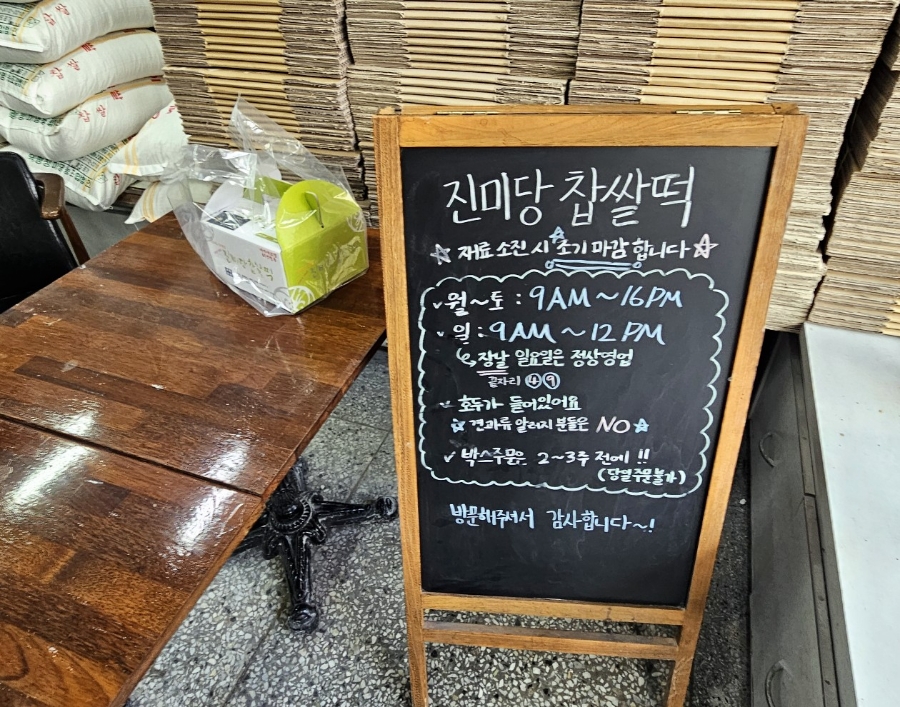 진미당 찹쌀떡
☆ 재료 소진 시 조기 마감 합니다 ☆
✓ 월~토 : 9AM ~ 16PM
✓ 일 : 9AM ~ 12PM
↳ 장날 일요일은 정상영업
끝자리 ④⑨
✓ 호두가 들어있어요
☆ 견과류 알러지 분들은 NO ☆
✓ 박스주문은 2~3주 전에!!
(당일주문불가)
방문해주셔서 감사합니다~!